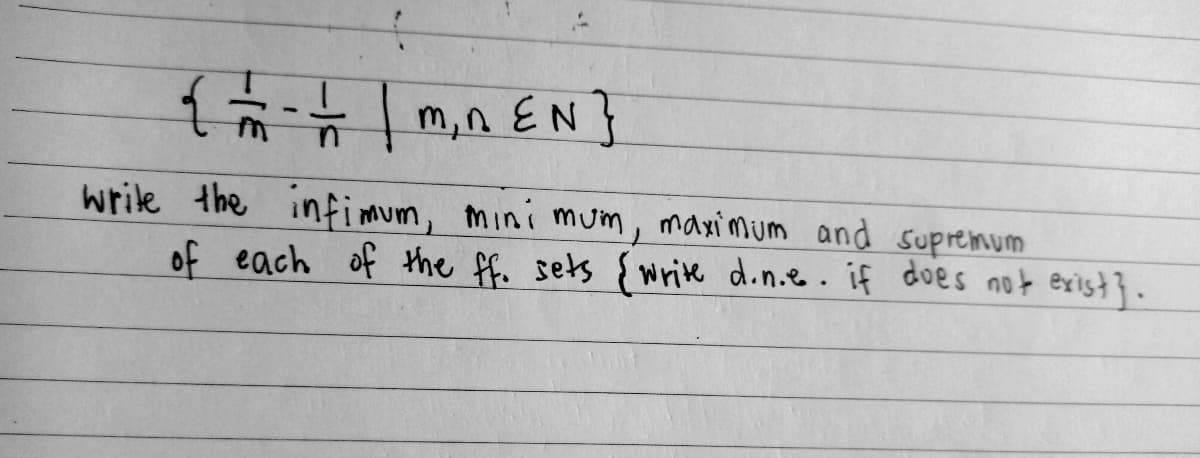 { 1/m - 1/n | m,n ∈ N }
write the infimum, minimum, maximum and supremum
of each of the ff. sets {write d.n.e. if does not exist}.